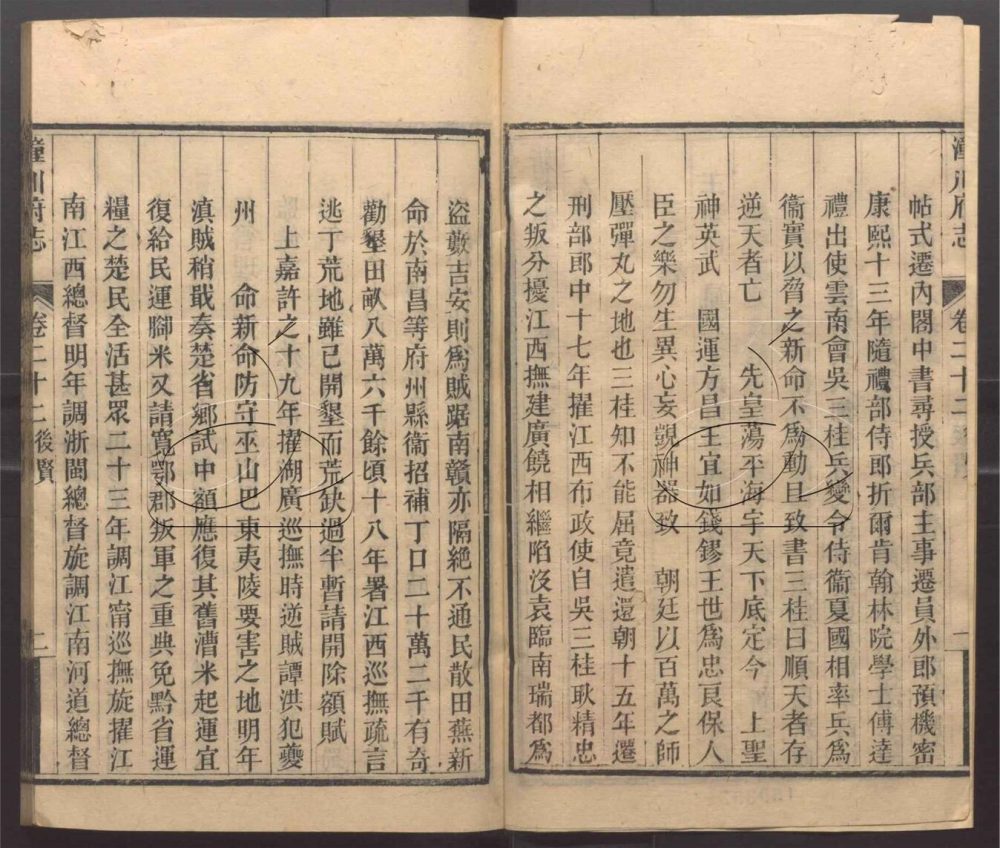 潼川府志
卷二十二
一
帖式遷內閣中書尋授兵部主事遷員外郎預機密
康熙十三年隨禮部侍郎折爾肯翰林院學士傅達
禮出使雲南會吳三桂兵變令侍衞夏國相率兵爲
衞實以脅之新命不爲動且致書三桂曰順天者存
逆天者亡 先皇蕩平海宇天下底定今 上聖
神英武 國運方昌王宜如錢鏐王世爲忠良保人
臣之樂勿生異心妄覬神器致 朝廷以百萬之師
壓彈丸之地也三桂知不能屈竟遣還朝十五年遷
刑部郎中十七年擢江西布政使自吳三桂耿精忠
之叛分擾江西撫建廣饒相繼陷沒袁臨南瑞都爲
盜藪吉安則爲賊踞南贛亦隔絕不通民散田蕪新
命於南昌等府州縣衞招補丁口二十萬二千有奇
勸墾田畝八萬六千餘頃十八年署江西巡撫疏言
逃丁荒地雖已開墾而荒缺過半暫請開除額賦
上嘉許之十九年擢湖廣巡撫時逆賊譚洪犯夔
州 命新命防守巫山巴東夷陵要害之地明年
滇賊稍戢奏楚省鄉試中額應復其舊漕米起運宜
復給民運腳米又請寬鄂郡叛軍之重典免黔省運
糧之楚民全活甚眾二十三年調江甯巡撫旋擢江
南江西總督明年調浙閩總督旋調江南河道總督
潼川府志
卷二十二
後賢
二